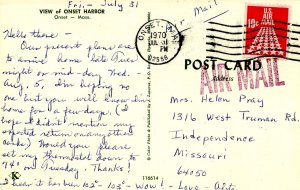 Fri., July 31
VIEW of ONSET HARBOR
Onset — Mass.
Air Mail
Hello there! -
Our present plans are
to arrive home late Tues.
night or mid-day Wed.
Aug. 5, I'm hoping no
one but you will know I'm
home for a few days. (I
hope I didn't mention my
expected return on any other
cards) Would you please
set my thermostat down to
74° on Tuesday. Thanks!
I hear it has been 102°-103° - Wow! - Love - Aleta
ONSET, MA
1970
JUL 31
PM
02558
U.S.
AIR MAIL
10c
POST CARD
Address
AIR MAIL
Mrs. Helen Pray
1316 West Truman Rd.
Independence
Missouri
64050
K
116614